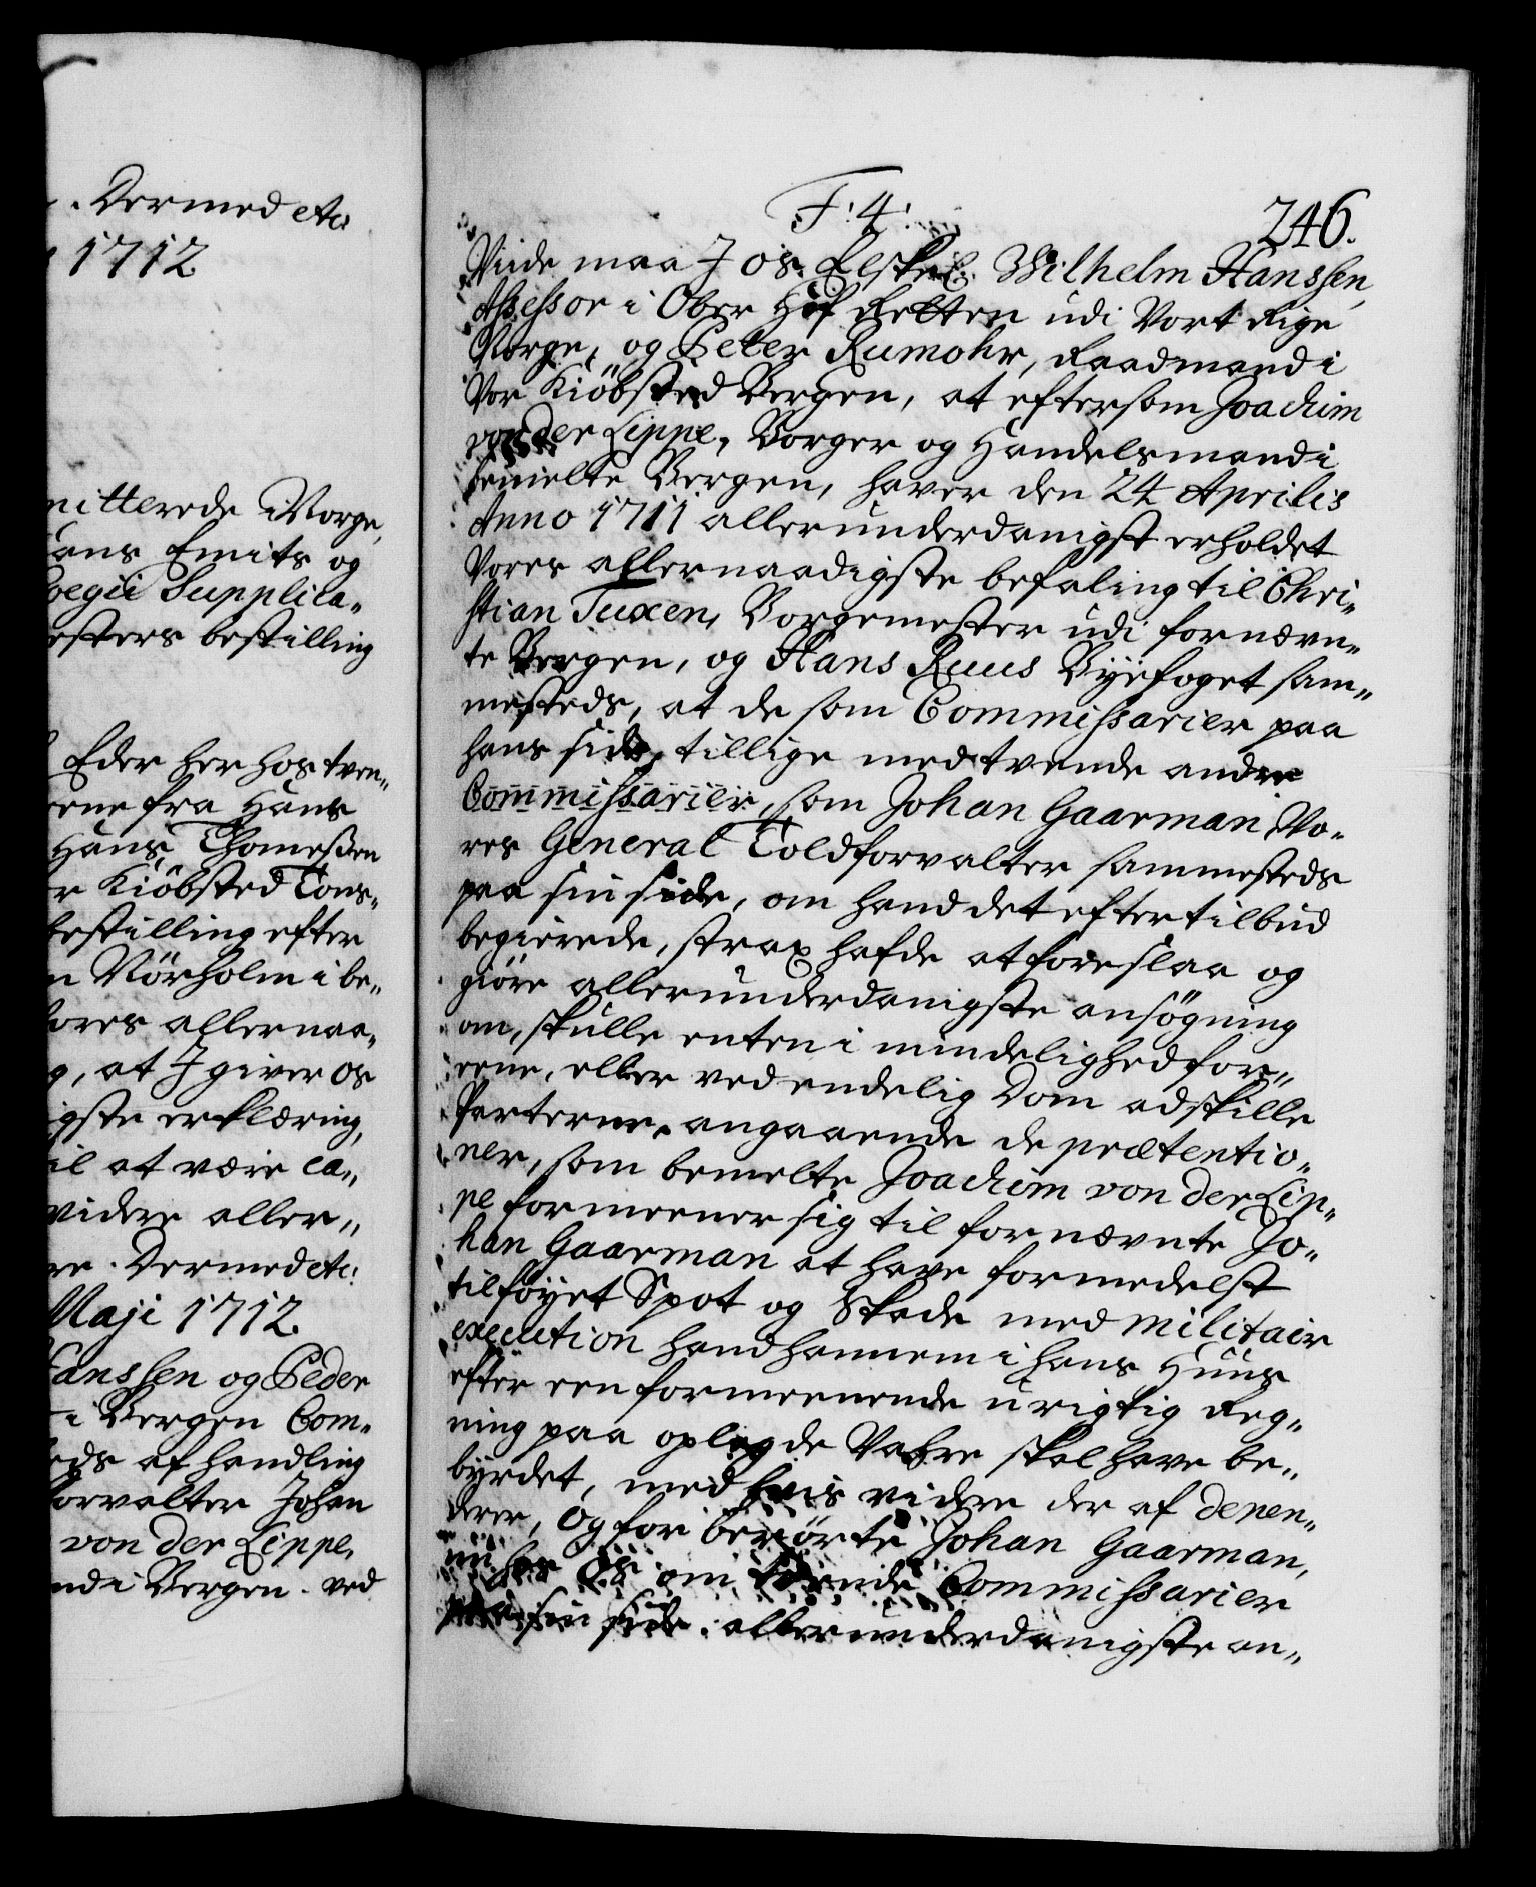 . Dermed etc:
1712
nitterede i Norge,
ans Emits og
Regii Supplica„
esters bestilling
Eder her hos tven„
erne fra Hans
Hans Thomeßen
r Kiöbsted Tons„
bestilling efter
n Nörholm i be„
vores allernaa„
g, at I giver os
igste erklæring,
il at være ca„
videre aller„
re. Dermed etc:
Maji 1712.
Hanssen og Peder
i Bergen Com„
eds afhandling
forvalter Johan
von der Lippe,
nd i Bergen. ved
F: 4:
246.
Viide maa I os Elskel: Wilhelm Hanssen,
Assessor i Ober Hof Retten udi Vort Rige
Norge, og Peter Rumohr, Raadmand i
Vor Kiöbsted Bergen, at eftersom Joachim
von der Lippe, Borger og Handelsmand i
bemelte Bergen, haver den 24 Aprilis
Anno 1711 allerunderdanigst erholdet
Vores allernaadigste befaling til Chri„
stian Tuxen, Borgemester udi fornævn„
te Bergen, og Hans Ruus Byefoget sam„
mesteds, at de som Commissarier paa
hans side, tillige med tvende andre
Commissarier, som Johan Gaarman Vo„
res General Toldforvalter sammesteds
paa sin side, om hand det efter tilbud
begierede, strax hafde at foreslaa og
giöre allerunderdanigste ansögning
om, skulle enten i mindelighed for„
eene, eller ved endelig Dom adskille
Parterne, angaaende de prætentio„
ner, som bemelte Joachim von der Lip„
pe formeener sig til fornævnte Jo„
han Gaarman at have formedelst
tilföyet Spot og Skade med militair
execution hand hannem i hans Huus
efter een formeenende urigtig Reg„
ning paa oplagde Vahre skal have be„
byrdet, med hvis videre der af depen„
derer, Og for berörte Johan Gaarman,
nu hos Os om tvende Commissarier
paa sin side, allerunderdanigste an„